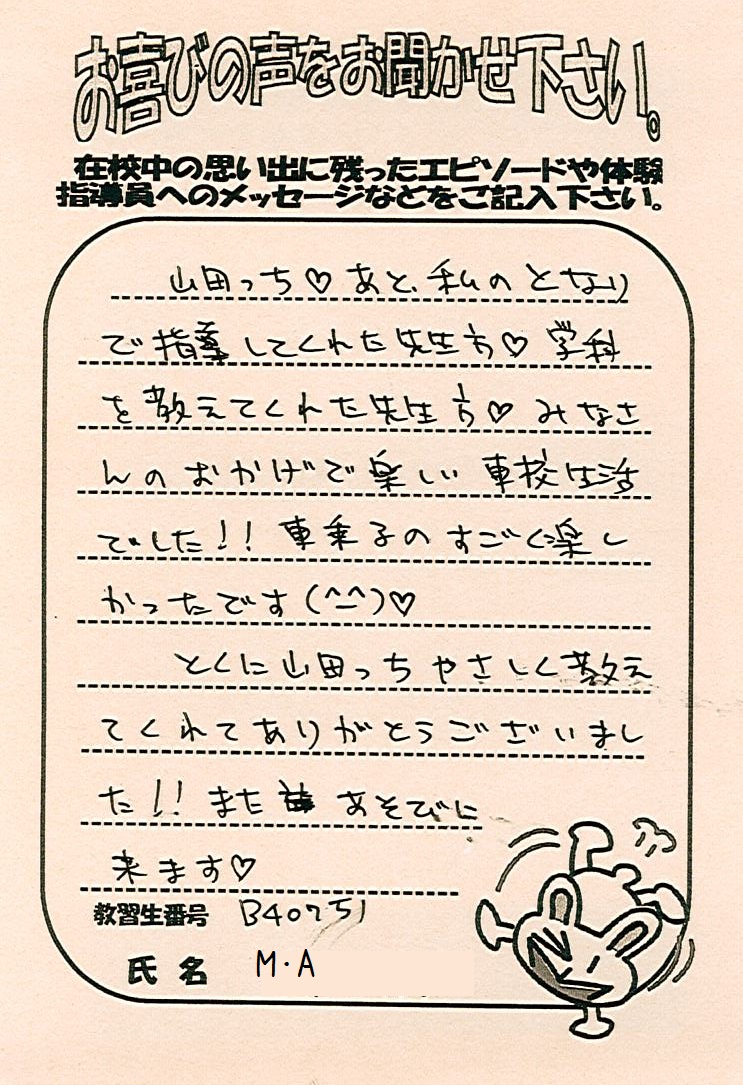 お喜びの声をお聞かせ下さい。
在校中の思い出に残ったエピソードや体験
指導員へのメッセージなどをご記入下さい。
山田っち♡あと、私のとなり
で指導してくれた先生方♡ 学科
を教えてくれた先生方♡ みなさ
んのおかげで楽しい 車校生活
でした!! 車乗るのすごく楽し
かったです(^-^)♡
とくに山田っち やさしく教え
てくれてありがとうございまし
た!! また あそびに
来ます♡
教習生番号 B40751
氏名 M・A